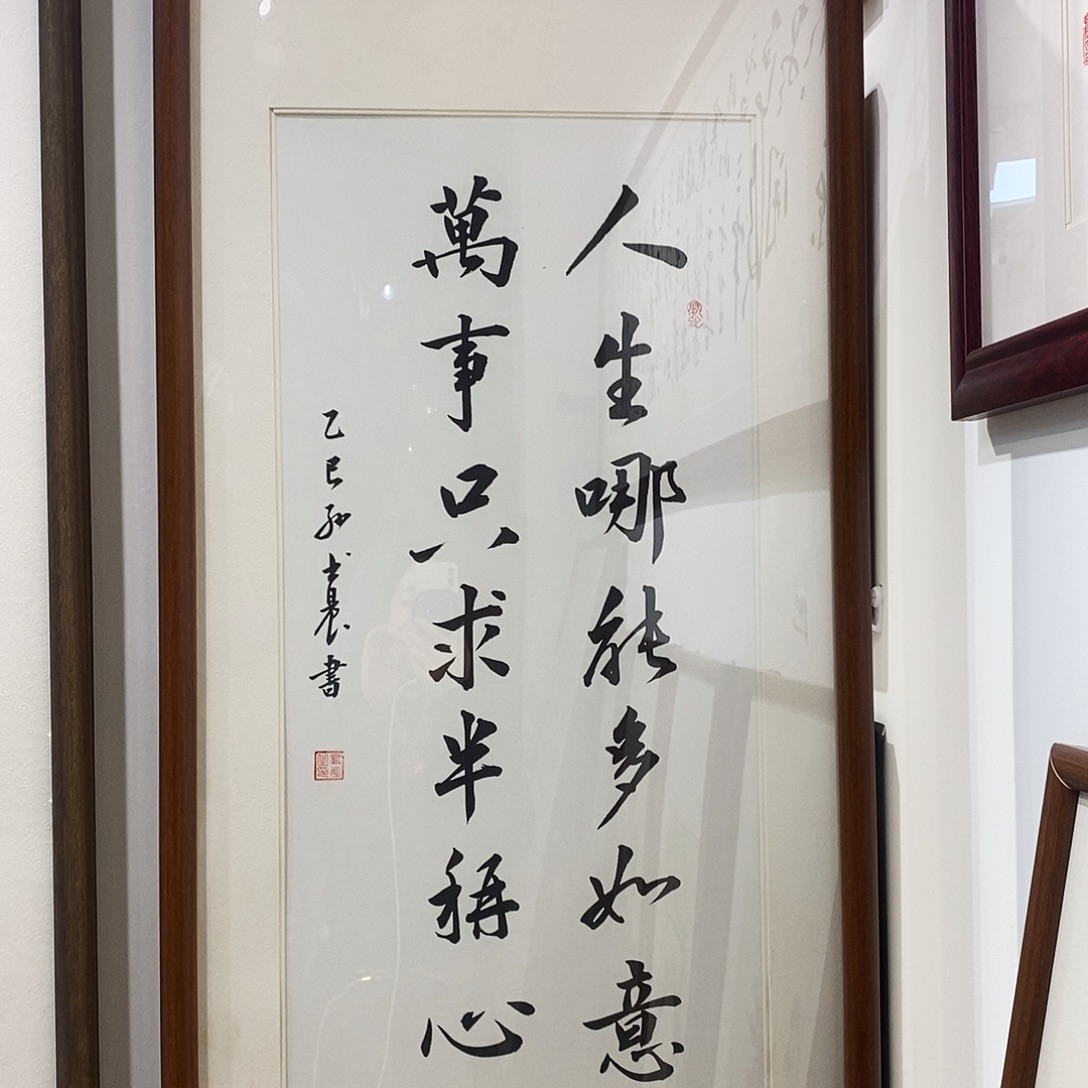 人生哪能多如意
萬事只求半稱心
乙巳孙士晨書